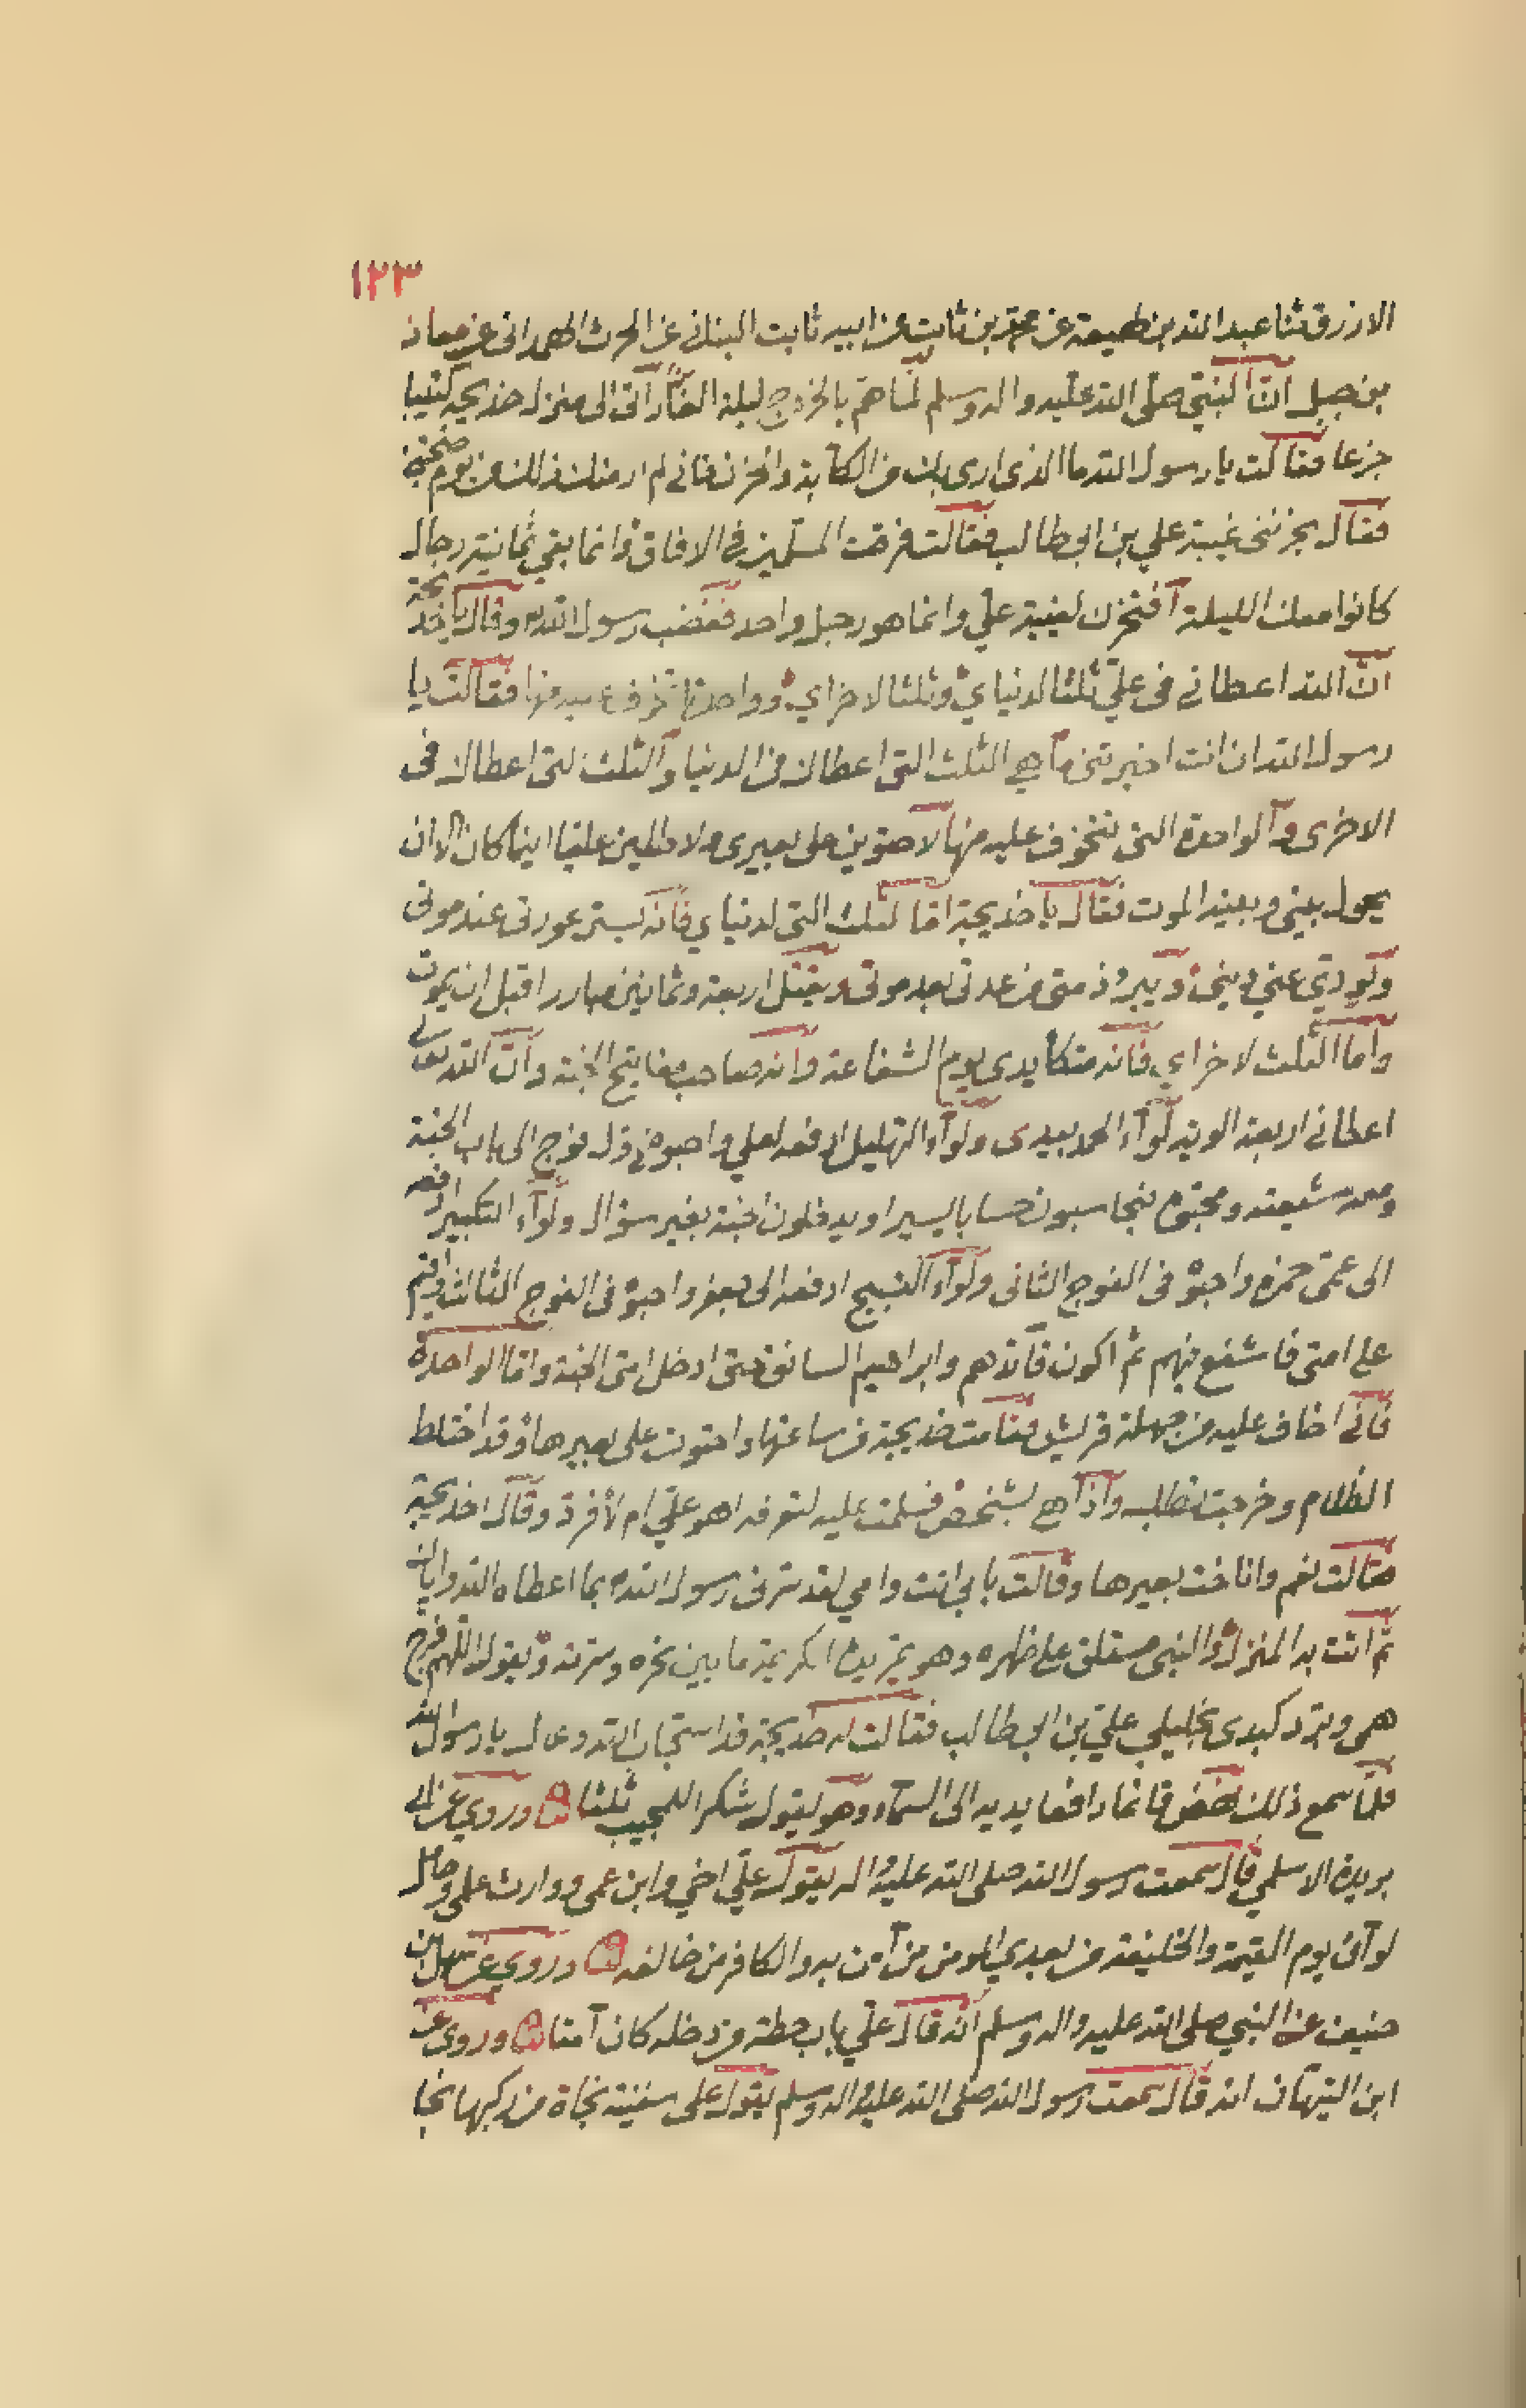 ١٢٣
الازرق ثنا عبد الله بن طهيعة عن محمد بن ثابت عن ابيه ثابت البناني عن الحرث الهمداني عن معاذ
بن جبل ان النبي صلى الله عليه واله وسلم لما هم بالخروج ليلة الغار اتى الى منزل خديجة كئيبا
جزعا فقالت يا رسول الله ما الذي ارى بك من الكابة والحزن فاني لم ار منك ذلك من يوم صحبتي
فقال يحزنني غيبة علي بن ابي طالب فقالت فرقت المسلمين في الافاق وانما بقي ثمانية رجال
كانوا معك الليلة افتحزن لغيبة علي وانما هو رجل واحد فغضب رسول الله وقال يا خديجة
ان الله اعطاني في علي ثلثا لدنياي وثلثا لاخراي وواحدة اتخوف عليه منها فقالت يا
رسول الله ان انت اخبرتني ما هي الثلث التي اعطاك من الدنيا والثلث التي اعطاك في
الاخرى والواحدة التي تتخوف عليه منها لاحتوين على بعيري ولاطلبن عليا اينما كان الا ان
يحول بيني وبينه الموت فقال يا خديجة اما الثلث التي لدنياي فانه يستر عورتي عند موتي
ويودي عني ديني ويبرؤ ذمتي من عدتي بعد موتي ويقتل اربعة وثمانين مبارزا قبل ان يموت
واما الثلث لاخراي فانه متكا يدي يوم الشفاعة وانه صاحب مفاتيح الجنة وان الله تعالى
اعطاني اربعة الوية لواء الحمد بيدي ولواء التهليل ادفعه لعلي واحبوه في اول فوج الى باب الجنة
ومعه شيعته ومحبوه يحاسبون حسابا يسيرا ويدخلون الجنة بغير سؤال ولواء التكبير ادفعه
الى عمي حمزه واحبوه في الفوج الثاني ولواء التسبيح ادفعه الى جعفر واحبوه في الفوج الثالث واقيم
على امتي فاشفع فيهم ثم اكون قائدهم وابراهيم السائق حتى ادخل امتي الجنة واما الواحدة
فاني اخاف عليه من جهلة قريش فقامت خديجة من ساعتها واحتوت على بعيرها وقد اختلط
الظلام وخرجت تطلبه واذا هي بشخص فسلمت عليه لتعرفه اهو علي ام لا فرد وقال اخديجة
فقالت نعم واناخت بعيرها وقالت بابي انت وامي لقد سرني رسول الله بما اعطاه الله واياك
ثم اتت به المنزل والنبي مستلق على ظهره وهو يمر يده الكريمة ما بين نحره وسرته ويقول اللهم فرج
همي وبرد كبدي بخليلي علي بن ابي طالب فقالت له خديجة قد استجاب الله دعاك يا رسول الله
فلما سمع ذلك نهض قائما رافعا يديه الى السماء وهو يقول شكرا للمجيب ثلثا وروي عن ابي
بريدة الاسلمي قال سمعت رسول الله صلى الله عليه واله يقول علي اخي وابن عمي ووارث علمي وحامل
لوآئي يوم القيمة والخليفة من بعدي المومن من آمن به والكافر من خالفه وروي عن سهل بن
حنيف عن النبي صلى الله عليه واله وسلم انه قال علي باب حطة من دخله كان آمنا وروي عن
ابن التيهان انه قال سمعت رسول الله صلى الله عليه واله وسلم يقول علي سفينة نجاة من ركبها نجا